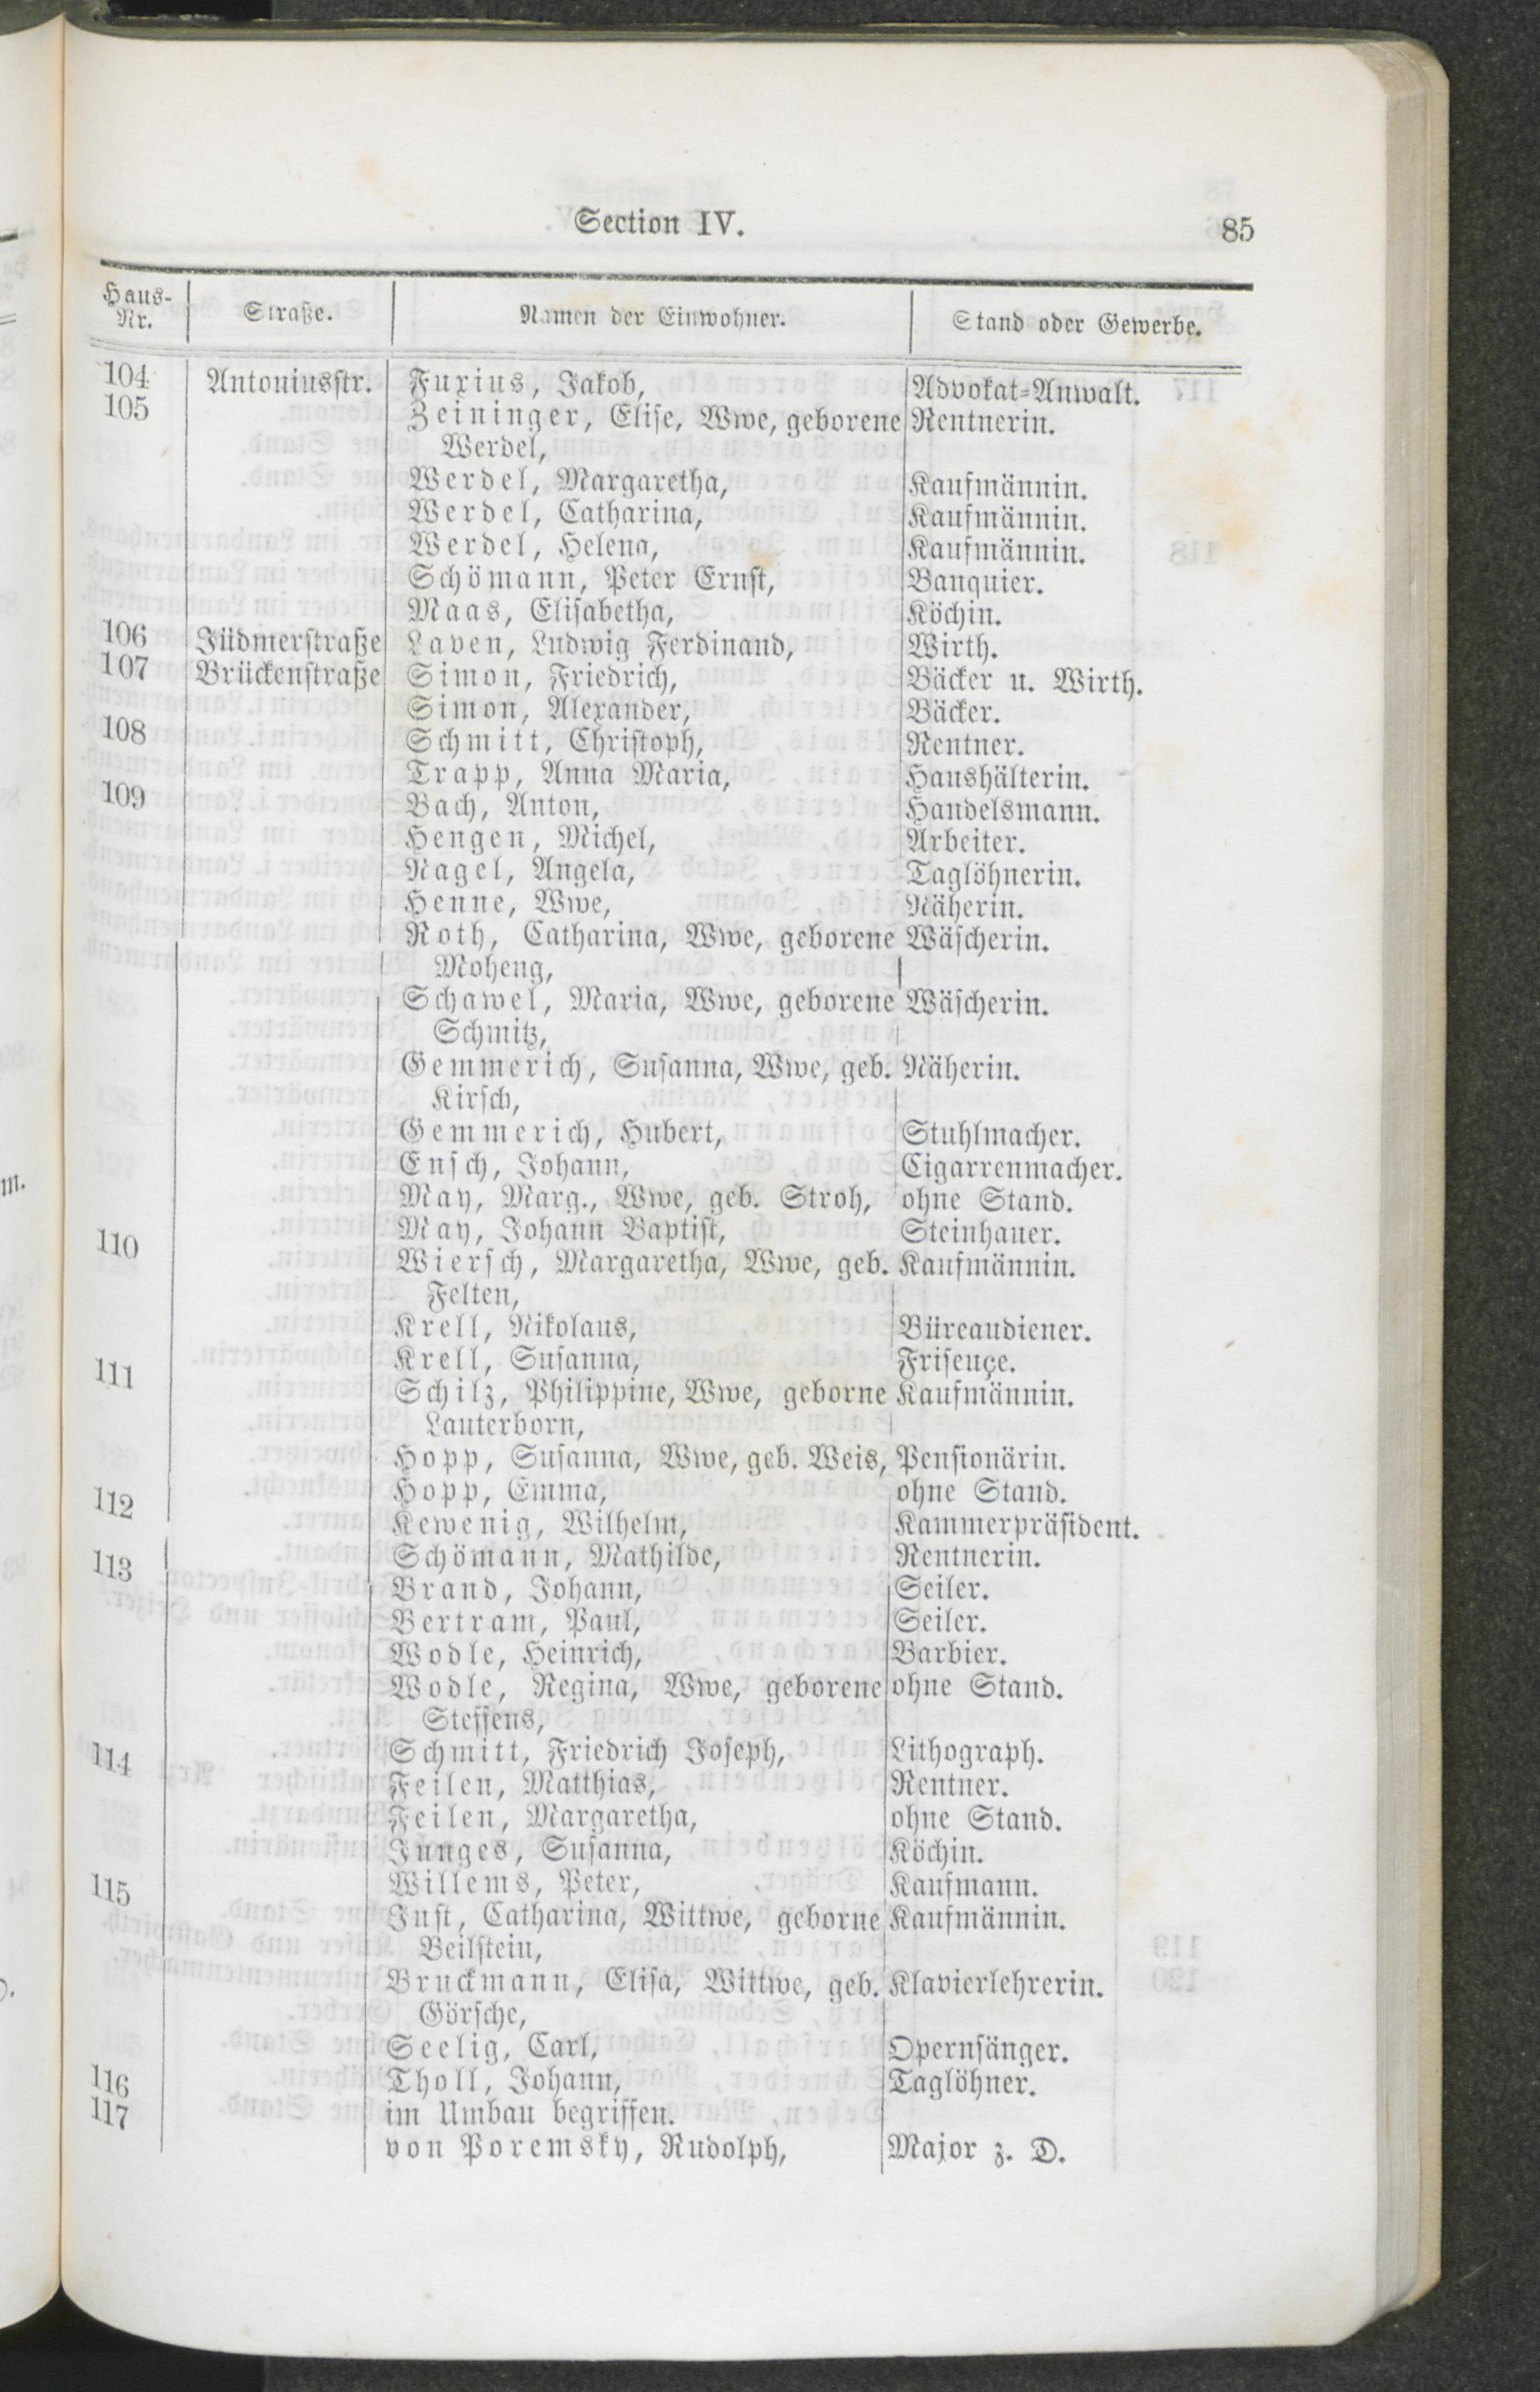 Section IV. 85
Haus-Nr. Straße. Namen der Einwohner. Stand oder Gewerbe.
104 Antoniusstr. Fuxius, Jakob, Advokat-Anwalt.
105 Zeininger, Elise, Wwe, geborene Rentnerin.
Werdel,
Werdel, Margaretha, Kaufmännin.
Werdel, Catharina, Kaufmännin.
Werdel, Helena, Kaufmännin.
Schömann, Peter Ernst, Banquier.
Maas, Elisabetha, Köchin.
106 Jüdmerstraße Laven, Ludwig Ferdinand, Wirth.
107 Brückenstraße Simon, Friedrich, Bäcker u. Wirth.
Simon, Alexander, Bäcker.
108 Schmitt, Christoph, Rentner.
Trapp, Anna Maria, Haushälterin.
109 Bach, Anton, Handelsmann.
Hengen, Michel, Arbeiter.
Nagel, Angela, Taglöhnerin.
Henne, Wwe, Näherin.
Roth, Catharina, Wwe, geborene Wäscherin.
Moheng,
Schawel, Maria, Wwe, geborene Wäscherin.
Schmitz,
Gemmerich, Susanna, Wwe, geb. Näherin.
Kirsch,
Gemmerich, Hubert, Stuhlmacher.
Ensch, Johann, Cigarrenmacher.
May, Marg., Wwe, geb. Stroh, ohne Stand.
May, Johann Baptist, Steinhauer.
110 Wiersch, Margaretha, Wwe, geb. Kaufmännin.
Felten,
Krell, Nikolaus, Büreaudiener.
Krell, Susanna, Friseuçe.
111 Schilz, Philippine, Wwe, geborne Kaufmännin.
Lauterborn,
Hopp, Susanna, Wwe, geb. Weis, Pensionärin.
Hopp, Emma, ohne Stand.
112 Kewenig, Wilhelm, Kammerpräsident.
Schömann, Mathilde, Rentnerin.
113 Brand, Johann, Seiler.
Bertram, Paul, Seiler.
Wodle, Heinrich, Barbier.
Wodle, Regina, Wwe, geborene ohne Stand.
Steffens,
114 Schmitt, Friedrich Joseph, Lithograph.
Feilen, Matthias, Rentner.
Feilen, Margaretha, ohne Stand.
Junges, Susanna, Köchin.
115 Willems, Peter, Kaufmann.
Just, Catharina, Wittwe, geborne Kaufmännin.
Beilstein,
Bruckmann, Elisa, Wittwe, geb. Klavierlehrerin.
Görsche,
Seelig, Carl, Opernsänger.
116 Tholl, Johann, Taglöhner.
117 im Umbau begriffen.
von Poremsky, Rudolph, Major z. D.